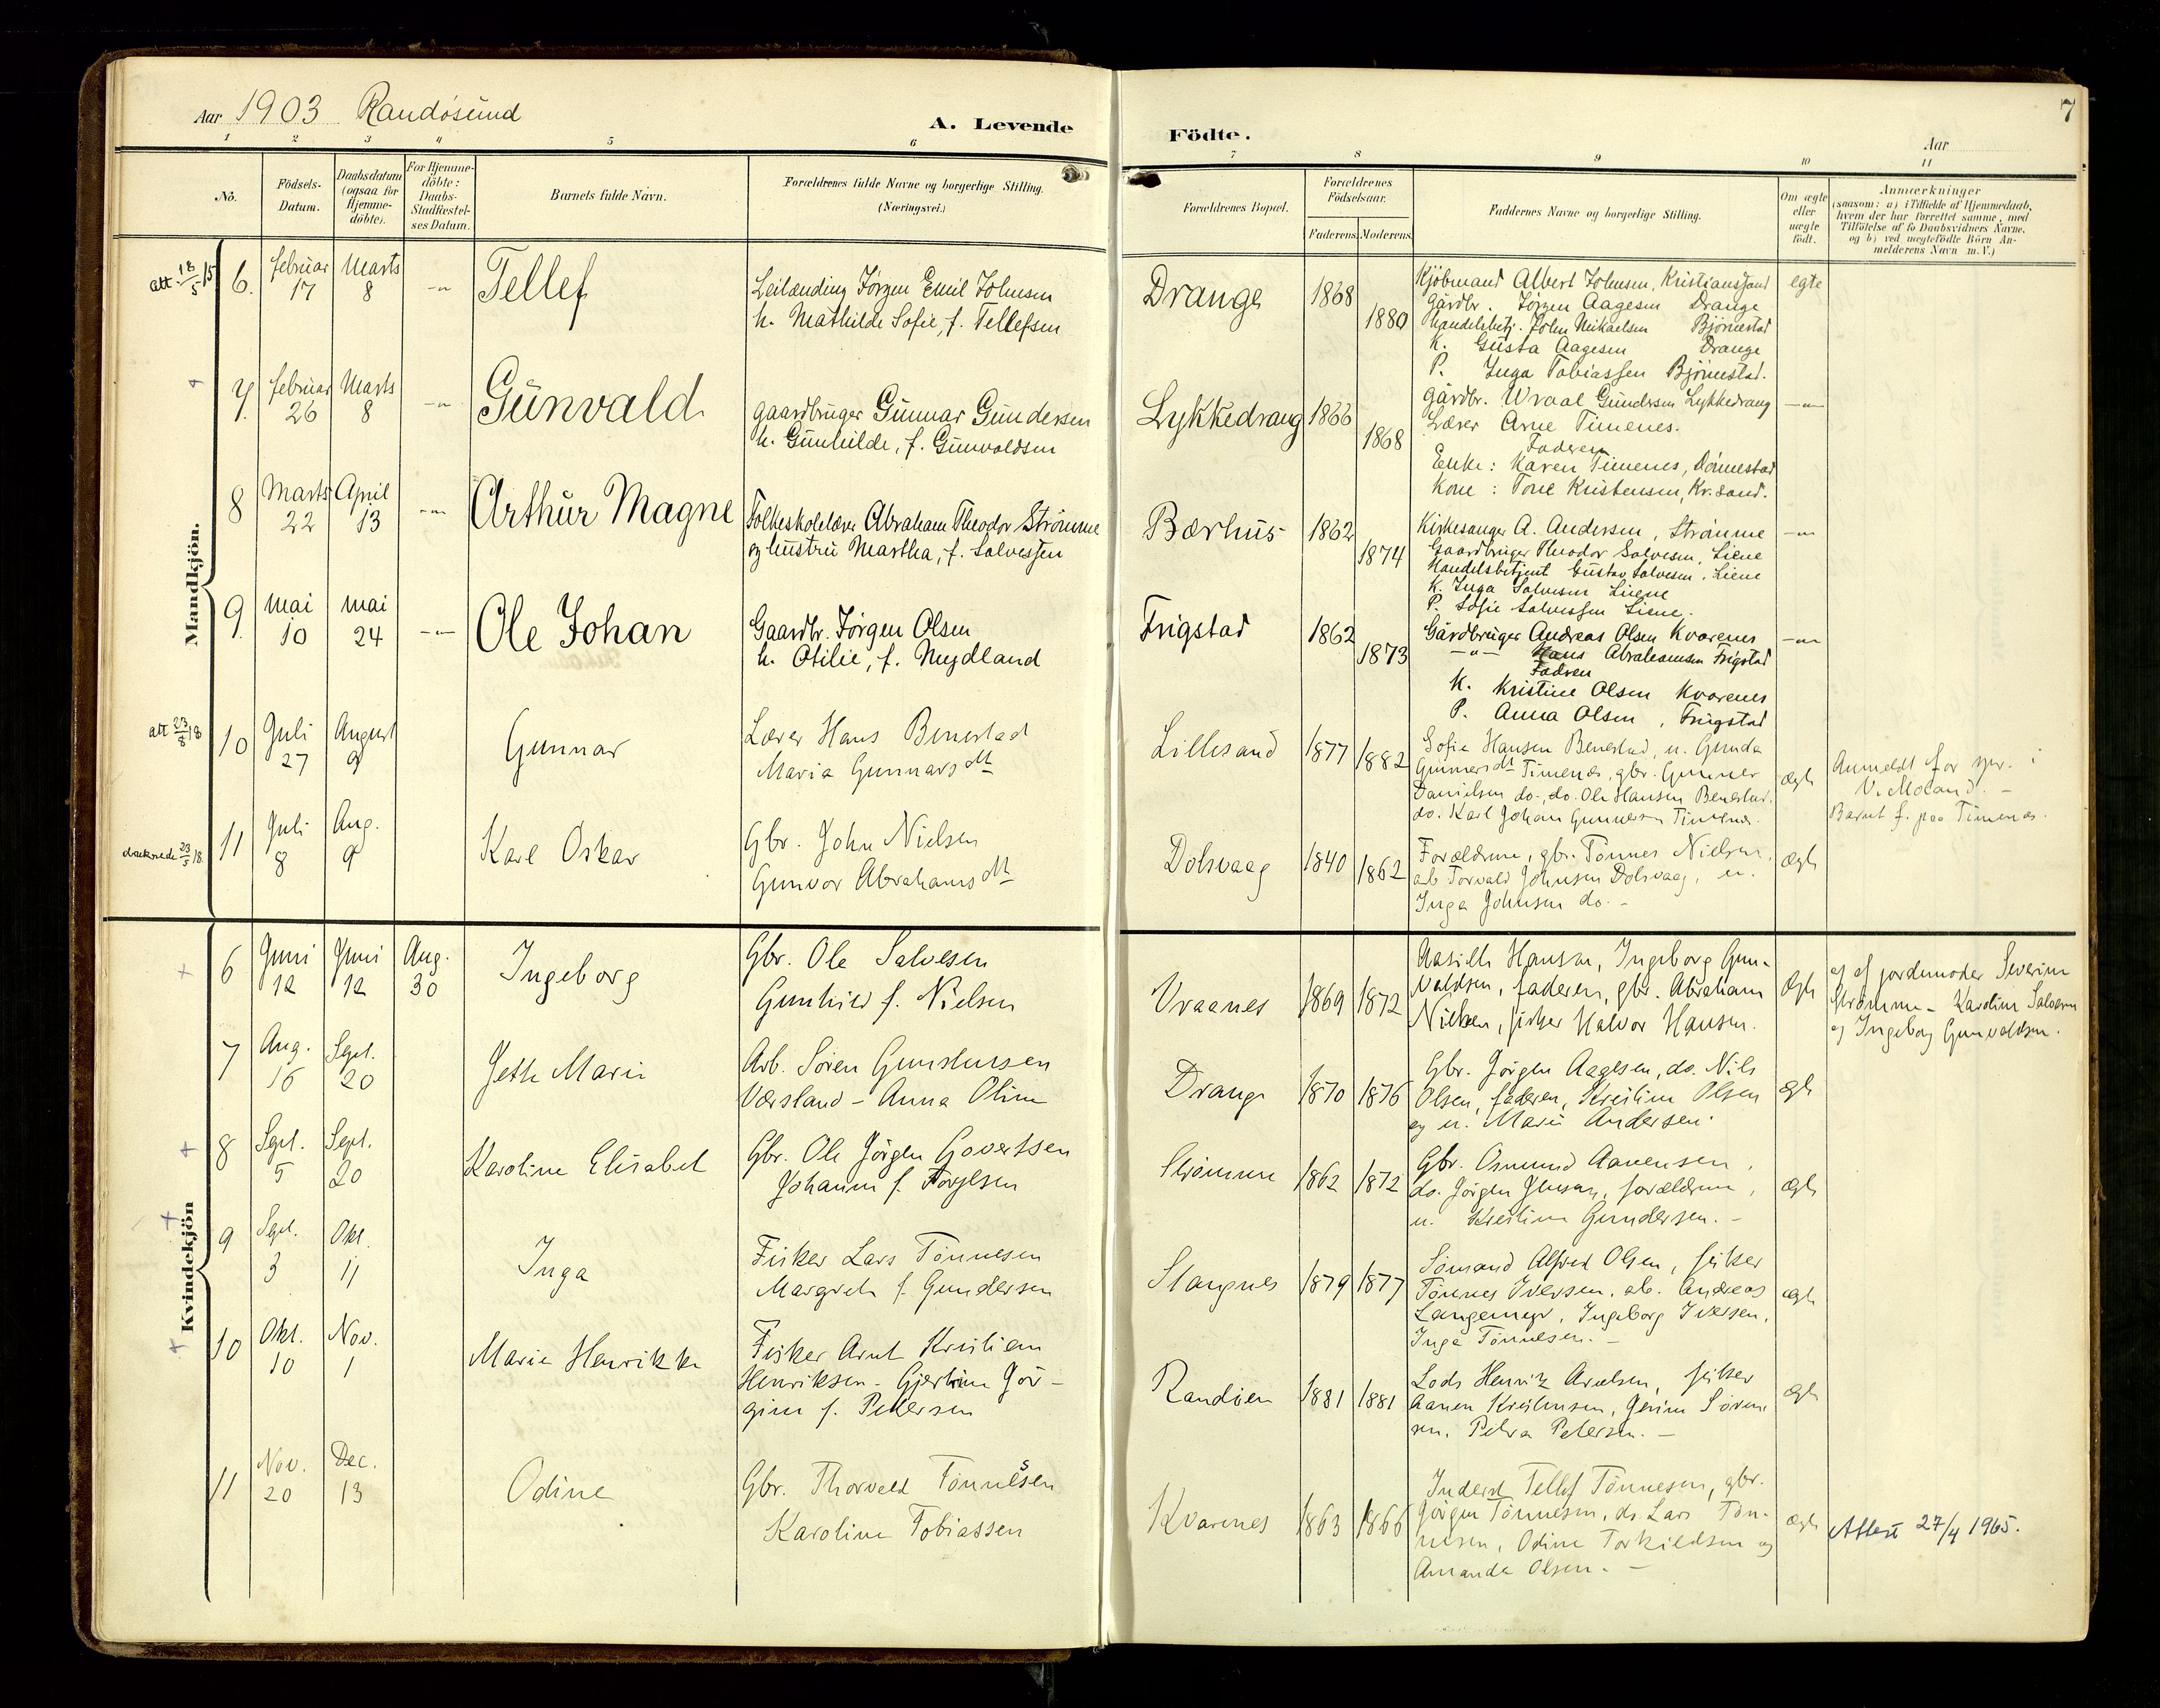 Aar 1903 Randøsund
A. Levende
Födte.
Aar
7
1 2 3 4 5 6 7 8 9 10 11
No.
Födsels-Datum.
Daabsdatum (ogsaa for Hjemme-döbte).
For Hjemme-döbte: Daabs-Stadfæstel-ses Datum.
Barnets fulde Navn.
Forældrenes fulde Navne og borgerlige Stilling.
(Næringsvei.)
Forældrenes Bopæl.
Forældrenes Födselsaar.
Faderens. Moderens.
Faddernes Navne og borgerlige Stilling.
Om ægte eller uægte födt.
Anmærkninger
(saasom: a) i Tilfælde af Hjemmedaab, hvem der har forrettet samme, med Tilföielse af to Daabsvidners Navne, og b) ved uægtefödte Börn An-melderens Navn m. V.)
Mandkjön.
att. 18/5 15
6. februar 17 Marts 8 -"- Tellef
Leilænding Jørgen Emil Johnsen
h. Mathilde Sofie, f. Tellefsen
Drange 1868 1880
Kjöbmand Albert Johnsen, Kristianssand
Gårdbr. Jörgen Aagesen Drange
Handelsbetj. John Mikaelsen Björnestad
K. Gusta Aagesen Drange
P. Inga Tobiassen Björnestad.
egte
7. februar 26 Marts 8 -"- Gunvald
gaardbruger Gunnar Gundersen
h. Gunhilde, f. Gunvaldsen
Lykkedrang 1866 1868
Gårdbr. Wraal Gundersen Lykkedrang
Lærer Arne Timenes.
Faderen
Enke: Karen Timenes, Dönnestad
Kone: Tone Kristensen, Kr.sand.
-"-
8 Marts 22 April 13 -"- Arthur Magne
Folkeskolelærer Abraham Theodor Strömme
og hustru Martha, f. Salvessen
Bærhus 1862 1874
Kirkesanger A. Andersen, Strömme
Gaardbruger Theodor Salvesen, Liene
Handelsbetjent Gustav Salvesen, Liene
K. Inga Salvesen Liene
P. Sofie Salvessen Liene.
-"-
9. mai 10 mai 24 -"- Ole Johan
Gaardbr. Jörgen Olsen
h. Otilie, f. Mydland
Frigstad 1862 1873
Gårdbruger Andreas Olsen Kvarenes
-"- Hans Abrahamsen Frigstad
Fadren
K. Kristine Olsen Kvarenes
P. Anna Olsen, Frigstad
-"-
att 23/8 18
10 Juli 27 August 9 Gunnar
Lærer Hans Benestad
Maria Gunnarsdt
Lillesand 1877 1882
Sofie Hansen Benestad, u. Gunda
Gunnersdt Timenes, gbr. Gunner
Danielsen do., do. Ole Hansen Benestad.
do. Karl Johan Gunnersen Timenes.
ægte
Anmeldt for spr. i
V. Moland. -
Barnet f. paa Timenes.
23/5 18.
11 Juli 8 Aug. 9 Karl Oskar
Gbr. John Nielsen
Gunvor Abrahamsdt
Dolsvaag 1840 1862
Forældrene, gbr. Tönnes Nielsen,
arb Torvald Johnsen Dolsvaag, u.
Inga Johnsen do. -
ægte
Kvindekjön
6 Juni 12 Juni 12 Aug. 30 Ingeborg
Gbr. Ole Salvesen
Gunhild f. Nielsen
Vraanes 1869 1872
Aasille Hansen, Ingeborg Gun-
valdsen, faderen, gbr. Abraham
Nielsen, fisker Halvor Hansen.
Ægte
af jordemoder Severine
Strömme - Karoline Salvesen
og Ingeborg Gunvaldsen.
7 Aug. 16 Sept. 20 Jette Marie
Arb. Sören Gunstensen
Værsland - Anna Oline
Drange 1870 1876
Gbr. Jörgen Aagesen, do. Nils
Olsen, faderen, Kristine Olsen
og u. Marie Andersen.
ægte
8 Sept. 5 Sept. 20 Karoline Elisabet
Gbr. Ole Jörgen Govertsen
Johanne f. Torjesen
Strömme 1862 1872
Gbr. Osmund Aanensen,
do. Jörgen Jensen, forældrene,
u. Kristine Gundersen. -
ægte
9 Sept. 3 Okt. 11 Inga
Fisker Lars Tönnesen
Margrete f. Gundersen
Stangnes 1879 1877
Sömand Alfred Olsen, fisker
Tönnes Iversen, ab. Andreas
Langemyr, Ingeborg Iversen,
Inga Tönnesen. -
ægte
10 Okt. 10 Nov. 1 Marie Henrikke
Fisker Arnt Kristian
Henriksen - Gjertine Jör-
gine f. Petersen
Randöen 1881 1881
Lods Henrik Axelsen, fisker
Aanen Kristensen, Gerine Sören-
sen, Petra Petersen. -
ægte
11 Nov. 20 Dec. 13 Odine
Gbr. Thorvald Tönnesen
Karoline Tobiassen
Kvarenes 1863 1866
Inderst Tellef Tönnesen, gbr.
Jörgen Tönnesen, do Lars Tön-
nesen, Odine Torkildsen og
Amanda Olsen. -
ægte
Attest 27/4 1965.